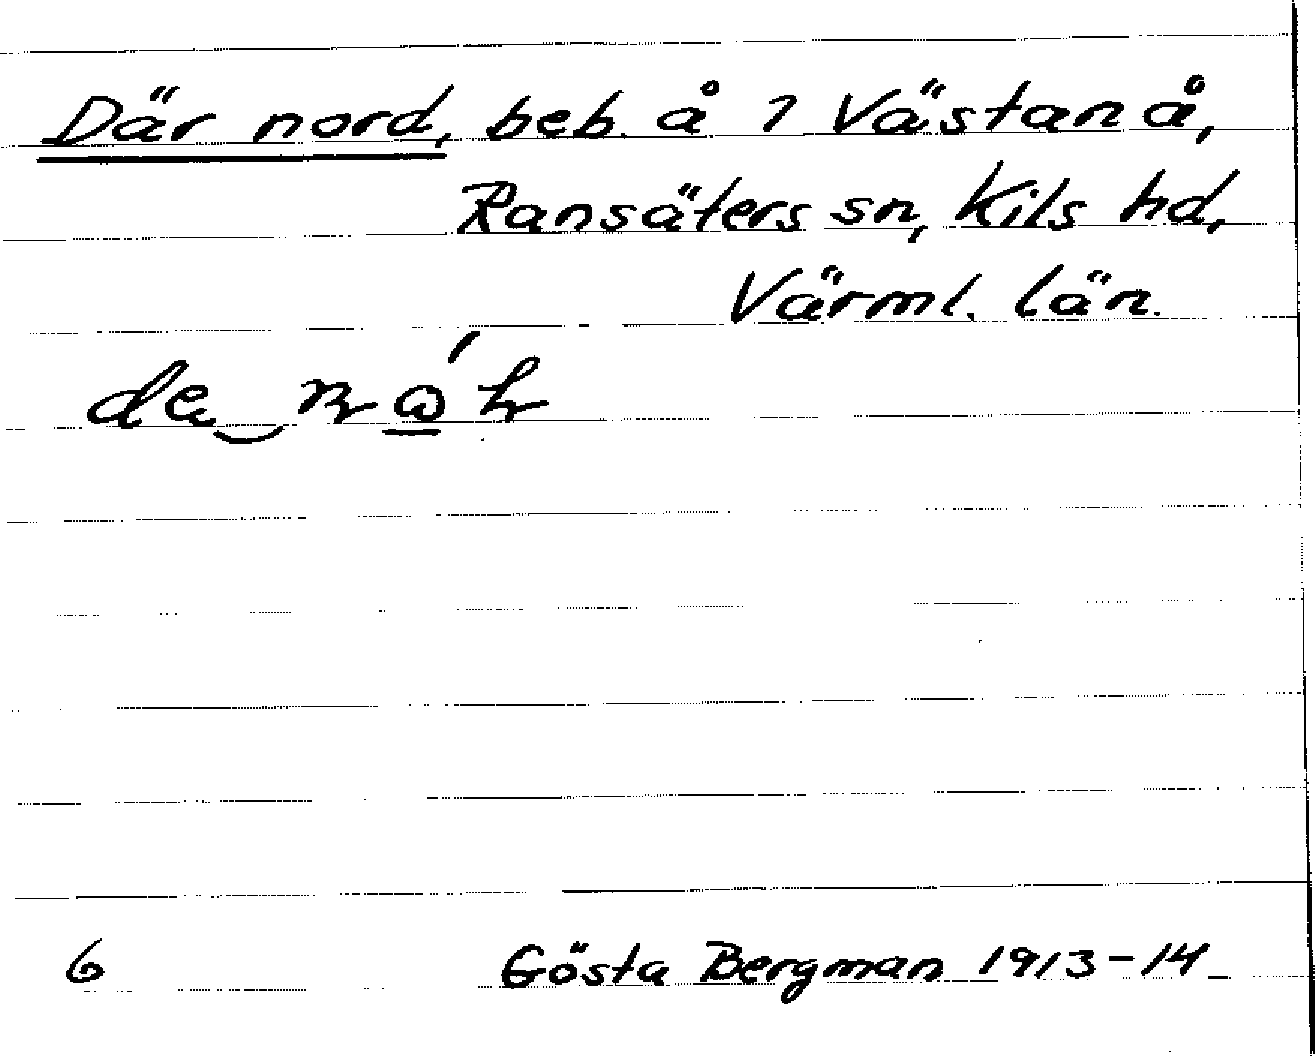 Där nord, beb. å 1 Västanå,
Ransäters sn, Kils hd,
Värml. län.
6
Gösta Bergman 1913-14